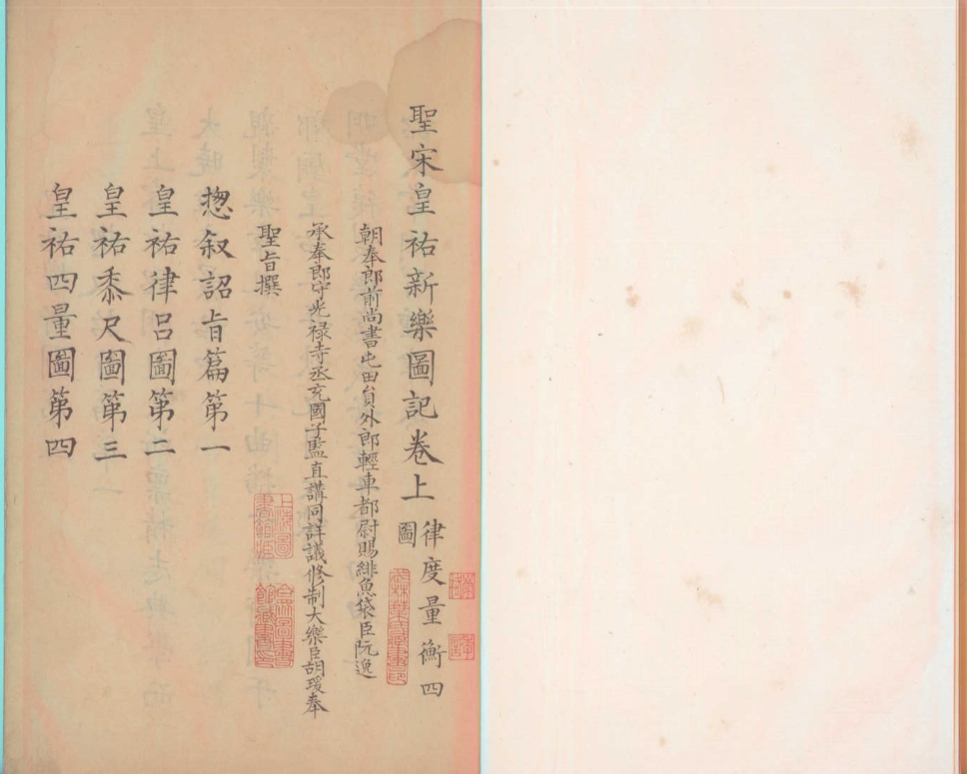 聖宋皇祐新樂圖記卷上 律度量衡四圖
朝奉郎前尚書屯田員外郎輕車都尉賜緋魚袋臣阮逸
承奉郎守光祿寺丞充國子監直講同詳議修制大樂臣胡瑗奉
聖旨撰
惣叙詔旨篇第一
皇祐律呂圖第二
皇祐黍尺圖第三
皇祐四量圖第四